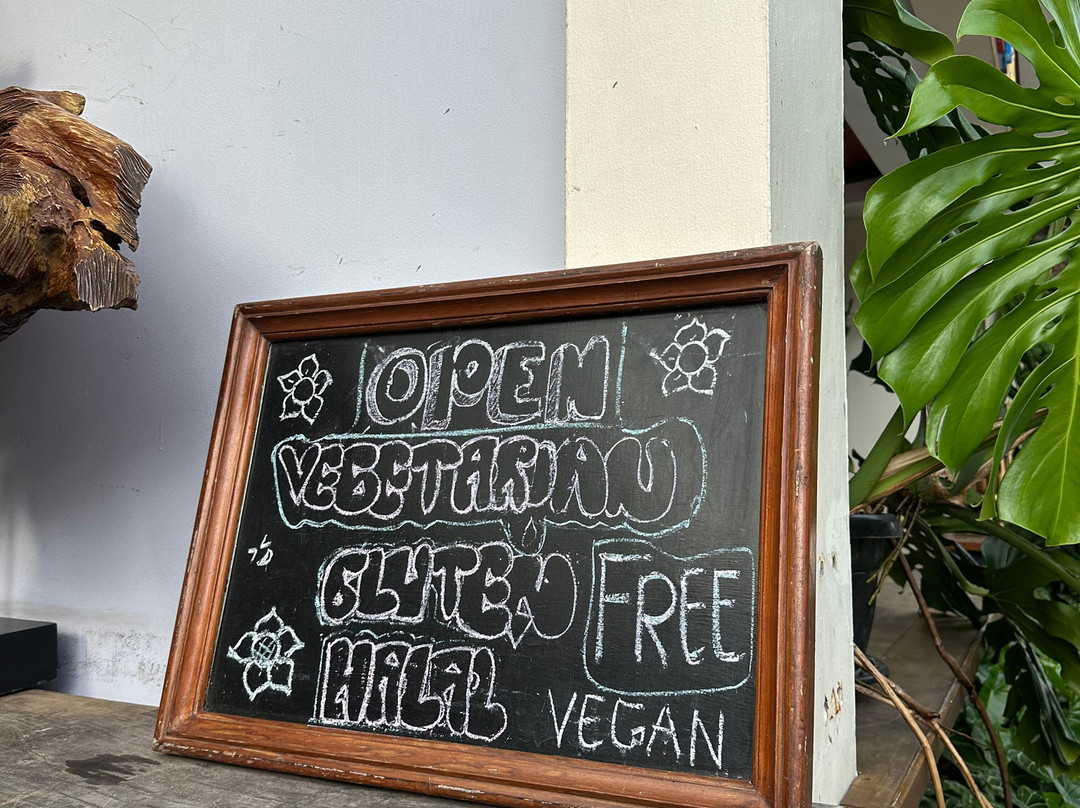 OPEN
VEGETARIAN
GLUTEN FREE
HALAL
VEGAN